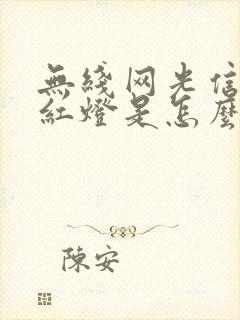 無綫网光信
紅燈是怎麽
陳安